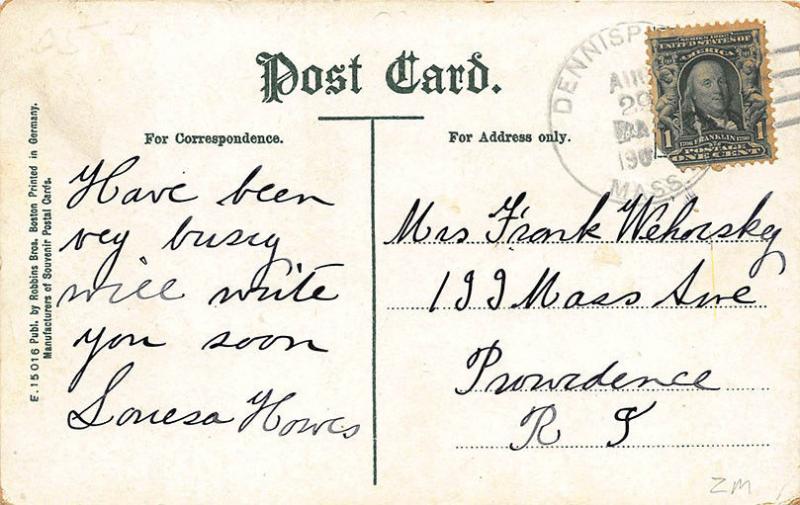 Post Card.
For Correspondence.
For Address only.
E.15016 Publ. by Robbins Bros. Boston Printed in Germany.
Manufacturers of Souvenir Postal Cards.
Have been
vey busey
will write
you soon
Louesa Howes
DENNISP
AUG
29
190
MASS.
SERIES 1902
UNITED STATES OF
AMERICA
FRANKLIN
1 1
POSTAGE
ONE CENT
Mrs Frank Wehosky
199 Mass Ave
Providence
R I
ZM